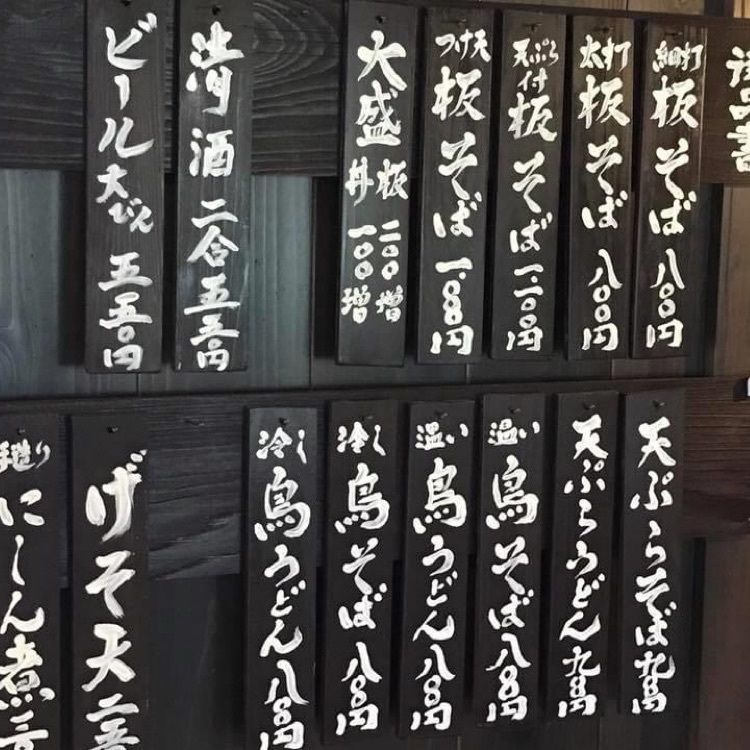 細打 板そば 八〇〇円
太打 板そば 八〇〇円
天ぷら付 板そば
つけ天 板そば
大盛 板 二〇〇増
丼 一〇〇増
清酒 二合 五五〇円
ビール 大びん 五五〇円
天ぷらそば 九〇〇円
天ぷらうどん 九〇〇円
温い 鳥そば 八〇〇円
温い 鳥うどん 八〇〇円
冷し 鳥そば 八〇〇円
冷し 鳥うどん 八〇〇円
げそ天 二五
手造り にしん煮